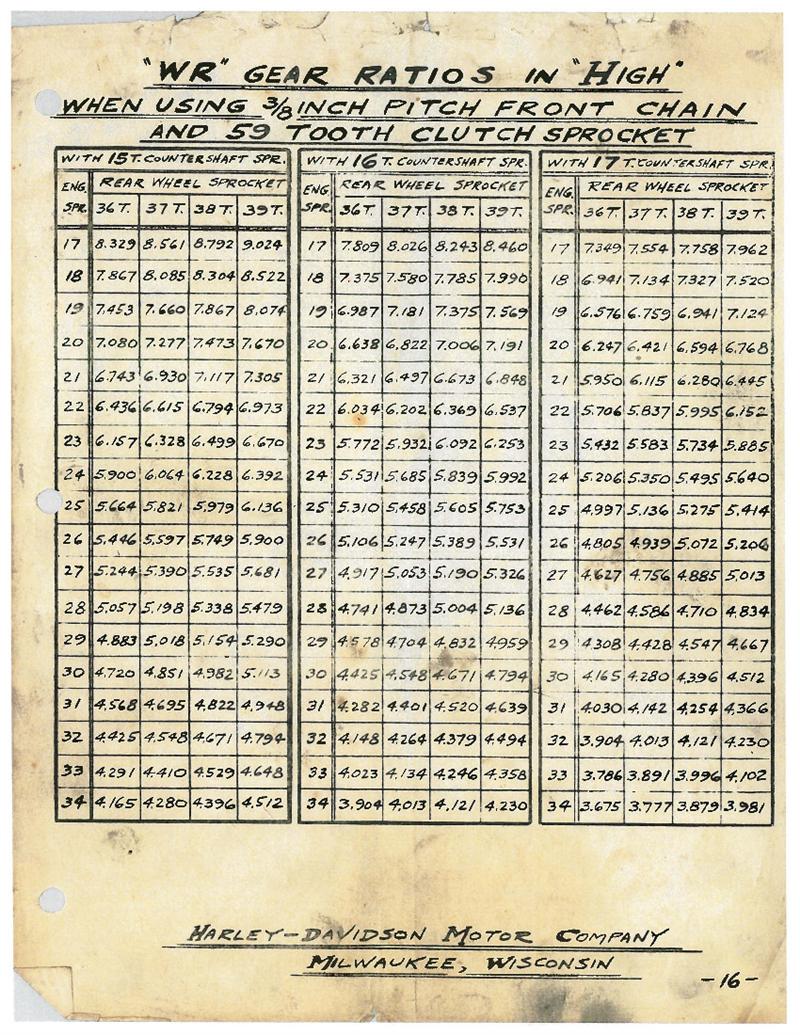 "WR" GEAR RATIOS IN "HIGH"
WHEN USING 3/8 INCH PITCH FRONT CHAIN
AND 59 TOOTH CLUTCH SPROCKET
WITH 15 T. COUNTERSHAFT SPR. WITH 16 T. COUNTERSHAFT SPR. WITH 17 T. COUNTERSHAFT SPR.
ENG. SPR. REAR WHEEL SPROCKET ENG. SPR. REAR WHEEL SPROCKET ENG. SPR. REAR WHEEL SPROCKET
36 T. 37 T. 38 T. 39 T. 36 T. 37 T. 38 T. 39 T. 36 T. 37 T. 38 T. 39 T.
17 8.329 8.561 8.792 9.024 17 7.809 8.026 8.243 8.460 17 7.349 7.554 7.758 7.962
18 7.867 8.085 8.304 8.522 18 7.375 7.580 7.785 7.990 18 6.941 7.134 7.327 7.520
19 7.453 7.660 7.867 8.074 19 6.987 7.181 7.375 7.569 19 6.576 6.759 6.941 7.124
20 7.080 7.277 7.473 7.670 20 6.638 6.822 7.006 7.191 20 6.247 6.421 6.594 6.768
21 6.743 6.930 7.117 7.305 21 6.321 6.497 6.673 6.848 21 5.950 6.115 6.280 6.445
22 6.436 6.615 6.794 6.973 22 6.034 6.202 6.369 6.537 22 5.706 5.837 5.995 6.152
23 6.157 6.328 6.499 6.670 23 5.772 5.932 6.092 6.253 23 5.432 5.583 5.734 5.885
24 5.900 6.064 6.228 6.392 24 5.531 5.685 5.839 5.992 24 5.206 5.350 5.495 5.640
25 5.664 5.821 5.979 6.136 25 5.310 5.458 5.605 5.753 25 4.997 5.136 5.275 5.414
26 5.446 5.597 5.749 5.900 26 5.106 5.247 5.389 5.531 26 4.805 4.939 5.072 5.206
27 5.244 5.390 5.535 5.681 27 4.917 5.053 5.190 5.326 27 4.627 4.756 4.885 5.013
28 5.057 5.198 5.338 5.479 28 4.741 4.873 5.004 5.136 28 4.462 4.586 4.710 4.834
29 4.883 5.018 5.154 5.290 29 4.578 4.704 4.832 4.959 29 4.308 4.428 4.547 4.667
30 4.720 4.851 4.982 5.113 30 4.425 4.548 4.671 4.794 30 4.165 4.280 4.396 4.512
31 4.568 4.695 4.822 4.948 31 4.282 4.401 4.520 4.639 31 4.030 4.142 4.254 4.366
32 4.425 4.548 4.671 4.794 32 4.148 4.264 4.379 4.494 32 3.904 4.013 4.121 4.230
33 4.291 4.410 4.529 4.648 33 4.023 4.134 4.246 4.358 33 3.786 3.891 3.996 4.102
34 4.165 4.280 4.396 4.512 34 3.904 4.013 4.121 4.230 34 3.675 3.777 3.879 3.981
HARLEY-DAVIDSON MOTOR COMPANY
MILWAUKEE, WISCONSIN
-16-